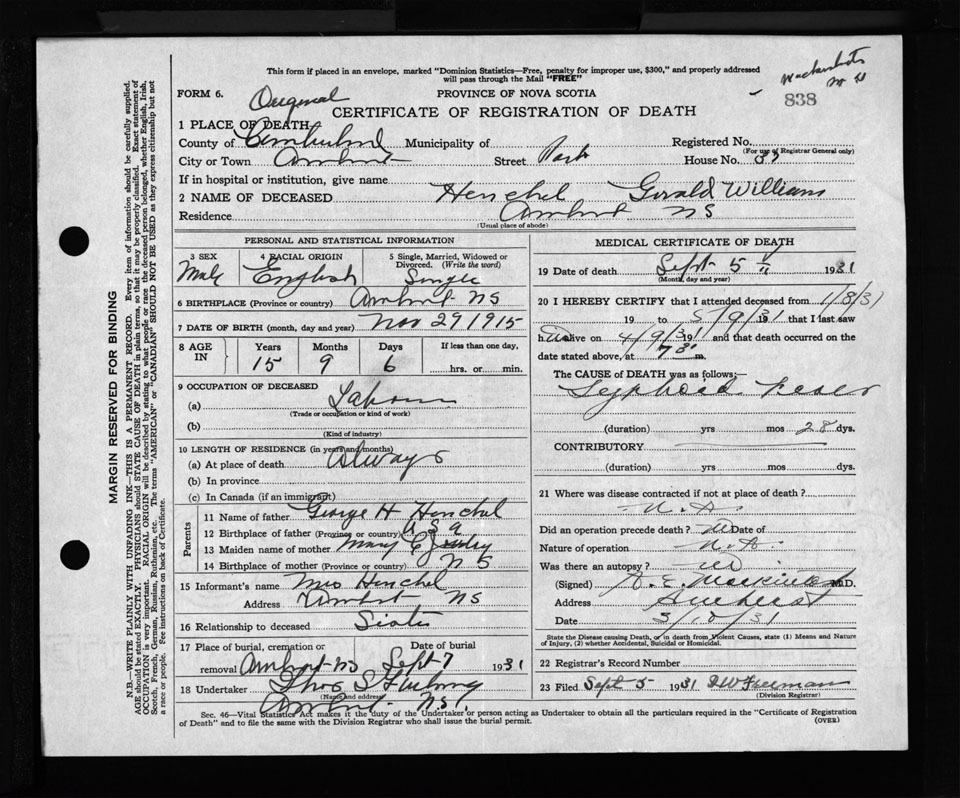 This form if placed in an envelope, marked "Dominion Statistics—Free, penalty for improper use, $300," and properly addressed
will pass through the Mail "FREE"
FORM 6.
Original
PROVINCE OF NOVA SCOTIA
838
CERTIFICATE OF REGISTRATION OF DEATH
1 PLACE OF DEATH
County of Cumberland Municipality of Registered No.
(For use of Registrar General only)
City or Town Amherst Street Park House No. 37
If in hospital or institution, give name
2 NAME OF DECEASED Henchel Gerald Williams
Residence Amherst NS
(Usual place of abode)
PERSONAL AND STATISTICAL INFORMATION
3 SEX
Male
4 RACIAL ORIGIN
English
5 Single, Married, Widowed or
Divorced. (Write the word)
Single
6 BIRTHPLACE (Province or country) Amherst NS
7 DATE OF BIRTH (month, day and year) Nov 29 1915
8 AGE IN
Years Months Days If less than one day,
15 9 6 hrs. or min.
9 OCCUPATION OF DECEASED
(a) Labourer
(Trade or occupation or kind of work)
(b)
(Kind of industry)
10 LENGTH OF RESIDENCE (in years and months)
(a) At place of death Always
(b) In province
(c) In Canada (if an immigrant)
Parents
11 Name of father George H Henchel
12 Birthplace of father (Province or country) U S A
13 Maiden name of mother Mary E
14 Birthplace of mother (Province or country) N S
15 Informant's name Mrs Henchel
Address Amherst NS
16 Relationship to deceased Sister
17 Place of burial, cremation or Date of burial
removal Amherst NS Sept 7 1931
18 Undertaker Thos S
(Name and address)
Amherst N.S.
MEDICAL CERTIFICATE OF DEATH
19 Date of death Sept 5 1931
(Month, day and year)
20 I HEREBY CERTIFY that I attended deceased from 1/8/31
19 to 5/9/31 that I last saw
h alive on 4/9/31 and that death occurred on the
date stated above, at m.
The CAUSE of DEATH was as follows:—
Typhoid Fever
(duration) yrs mos 28 dys.
CONTRIBUTORY
(duration) yrs mos dys.
21 Where was disease contracted if not at place of death?
N. A.
Did an operation precede death? No Date of
Nature of operation N. A.
Was there an autopsy? No
(Signed) A. E. Mackintosh M.D.
Address Amherst
Date 3/10/31
State the Disease causing Death, or in death from Violent Causes, state (1) Means and Nature
of Injury, (2) whether Accidental, Suicidal or Homicidal.
22 Registrar's Record Number
23 Filed Sept 5 1931 Freeman
(Division Registrar)
Sec. 46—Vital Statistics Act makes it the duty of the Undertaker or person acting as Undertaker to obtain all the particulars required in the "Certificate of Registration
of Death" and to file the same with the Division Registrar who shall issue the burial permit.
(OVER)
MARGIN RESERVED FOR BINDING
N.B.—WRITE PLAINLY WITH UNFADING INK—THIS IS A PERMANENT RECORD. Every item of information should be carefully supplied.
AGE should be stated EXACTLY. PHYSICIANS should STATE CAUSE OF DEATH in plain terms, so that it may be properly classified. Exact statement of
OCCUPATION is very important. RACIAL ORIGIN will be described by stating to what people or race the deceased person belonged, whether English, Irish,
Scotch, French, German, Russian, Ruthenian, etc. The terms "AMERICAN" or "CANADIAN" SHOULD NOT BE USED as they express citizenship but not
a race or people. Fee instructions on back of Certificate.